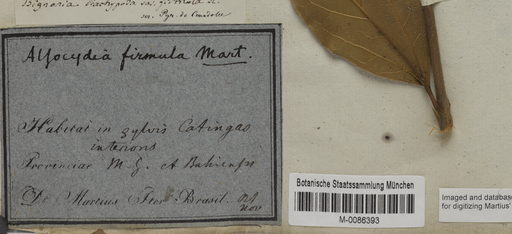 Bignonia brachypoda var. firmula DC.
sec. Pyr. de Candolle
Alsocydia firmula Mart.
Habitat in sylvis Catingas
interioris
Provinciae M. G. et Bahiensis
Dr. Martius Iter Brasil. Oct
Nov
Botanische Staatssammlung München
M-0086393
Imaged and database
for digitizing Martius'